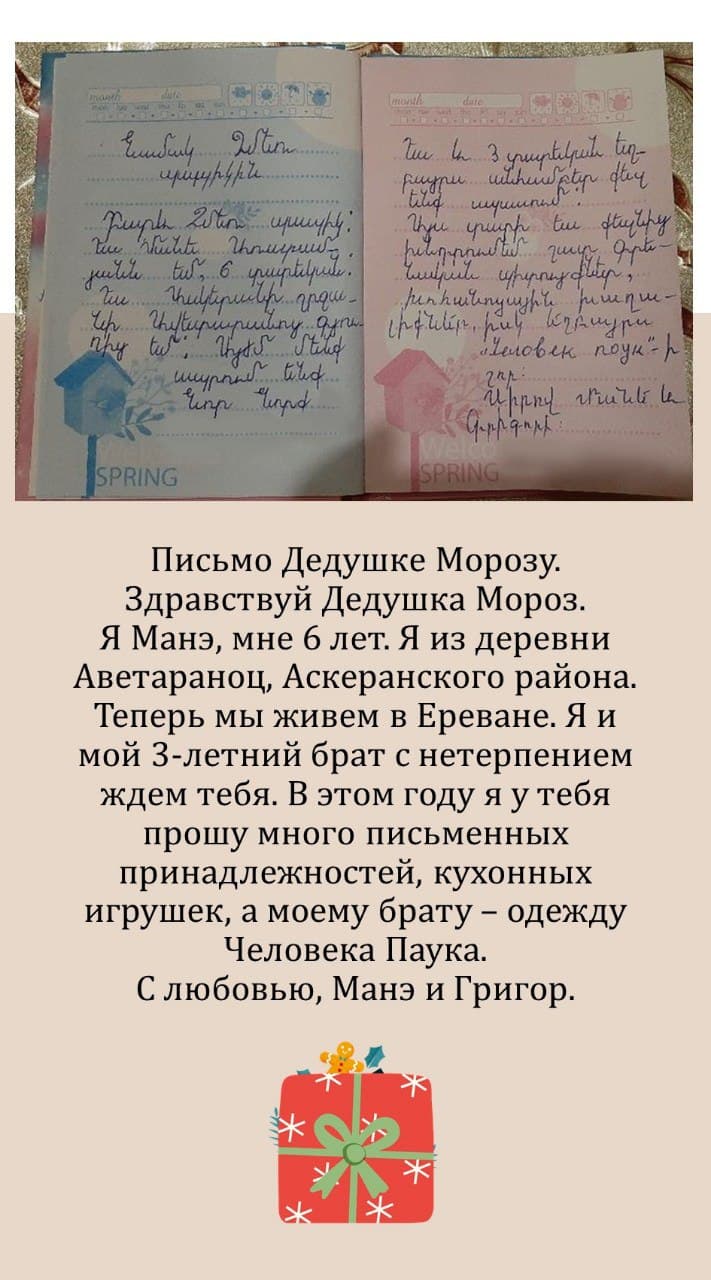 month date
mon tue wed thu fri sat sun
Նամակ Ձմեռ
պապիկին
Բարև Ձմեռ պապիկ:
Ես Մանեն
եմ, 6 տարեկան:
Ես Ասկերանի շրջա-
նի Ավետարանոց գյու-
ղից եմ: Այժմ մենք
ապրում ենք
SPRING
month date
mon tue wed thu fri sat sun
Ես և 3 տարեկան եղ-
բայրս անհամբեր քեզ
ենք սպասում:
Այս տարի ես քեզնից
խնդրում եմ շատ գրե-
նական պիտույքներ,
խոհանոցային խաղա-
լիքներ, իսկ եղբայրս
«Человек поук»-ի
շոր:
Սիրով Մանե և
Գրիգորի:
Welco
SPRING
Письмо Дедушке Морозу.
Здравствуй Дедушка Мороз.
Я Манэ, мне 6 лет. Я из деревни
Аветараноц, Аскеранского района.
Теперь мы живем в Ереване. Я и
мой 3-летний брат с нетерпением
ждем тебя. В этом году я у тебя
прошу много письменных
принадлежностей, кухонных
игрушек, а моему брату – одежду
Человека Паука.
С любовью, Манэ и Григор.